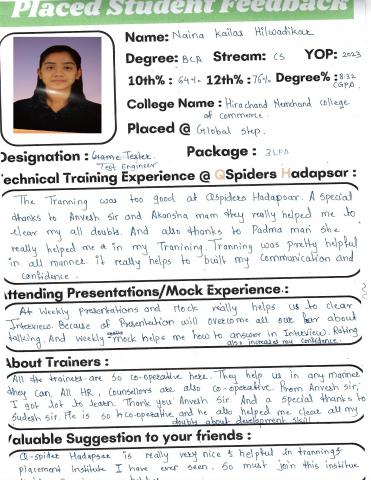 Placed Student Feedback
Name: Naina Kailas Hilwadikar
Degree: BCA Stream: CS YOP: 2023
10th% : 64% 12th% : 76% Degree% : 8.32 (CGPA)
College Name : Hirachand Nemchand college of commerce.
Placed @ Global step.
Designation : Game Tester. Package : 3LPA
Test Engineer
Technical Training Experience @ QSpiders Hadapsar :
The Tranning was too good at QSpiders Hadapsar. A special
thanks to Anvesh sir and Akansha mam they really helped me to
clear my all doubts. And also thanks to Padma mam she
really helped me in my Tranining. Tranning was pretty helpful
in all manner it really helps to built my Communication and
Confidence.
Attending Presentations/Mock Experience :
At Weekly Presentations and Mock really helps us to clear
Interview. Because of Presentation will overcome all our fear about
talking. And weekly mock helps me how to answer in Interview. Rating
also increases my confidence.
About Trainers :
All the trainers are so co-operative here. They help us in any manner
they can. All HR, Counsellors are also co-operative. From Anvesh sir,
I got lot to learn. Thank you Anvesh Sir. And a special thanks to
Sudesh sir. He is so co-operative and he also helped me clear all my
doubts about development skill.
Valuable Suggestion to your friends :
Q-spider Hadapsar is really very nice & helpful in tranning
placement Institute I have ever seen. So must join this institue